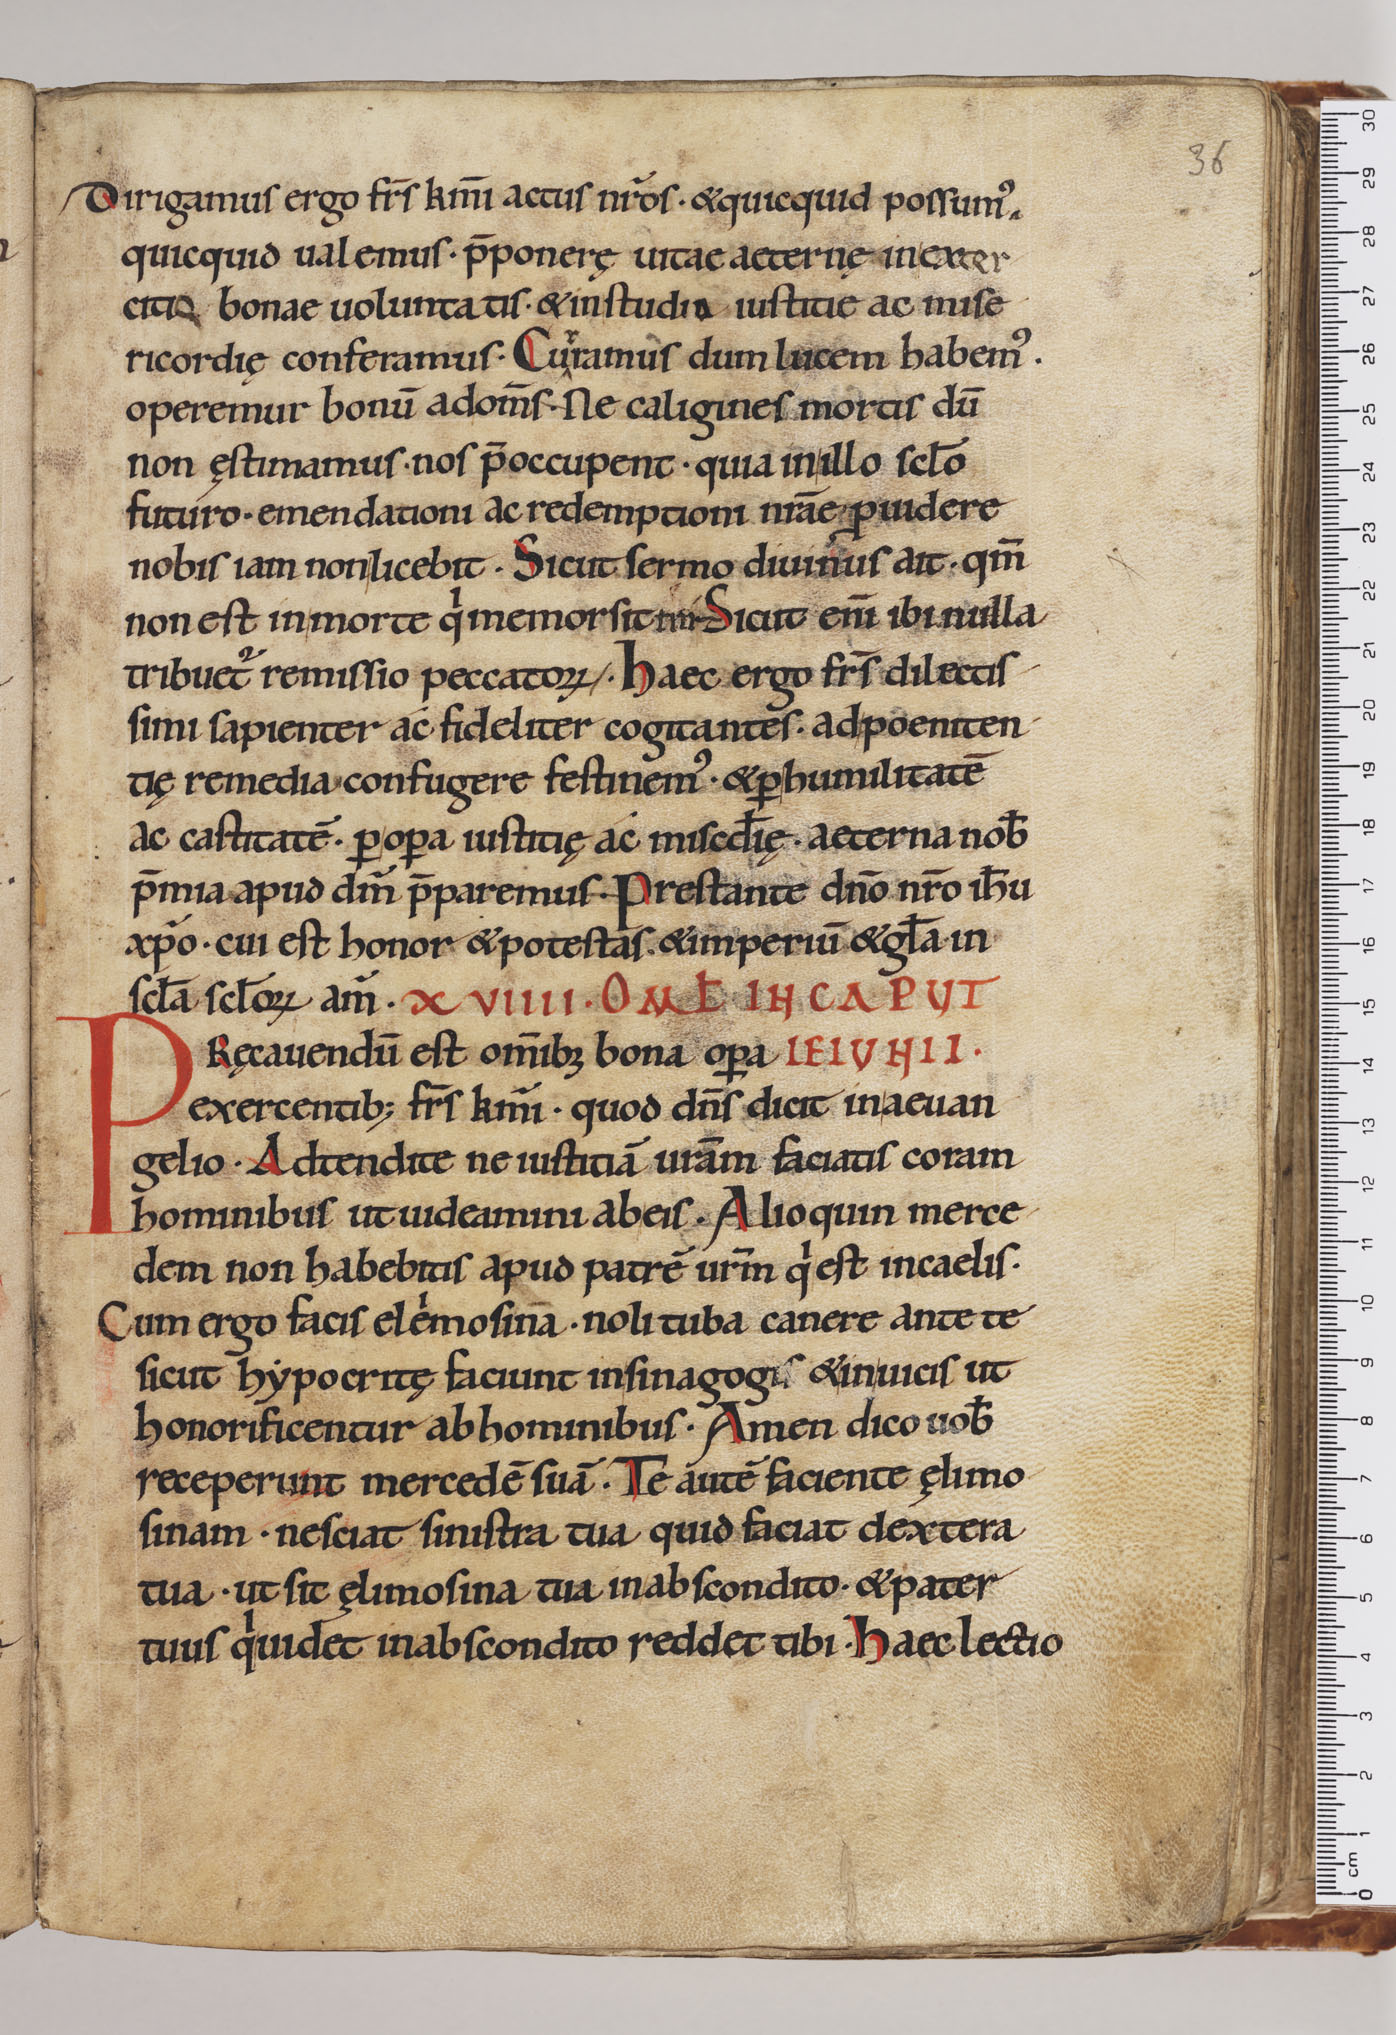 36
Dirigamus ergo fr̄s km̄i actus nr̄os · &quicquid possum᾽.
quicquid ualemus · p̄ponerę uitae aeternę inexer
citio bonae uoluntatis · &instudio iustitie ac mise
ricordię conferamus · Curramus dum lucem habem᾽ ·
operemur bonū ad om̄s · Ne caligines mortis dū
non ęstimamus · nos p̄occupent · quia inillo scl̄o
futuro · emendationi ac redemptioni nrāe ꝓuidere
nobis iam non licebit · Sicut sermo diuinus ait · qm̄
non est inmorte qͥ memor sit tui Sicut eni̅ ibi nulla
tribuet᷑ remissio peccatoꝝ · Haec ergo fr̄s dilectis
simi sapienter ac fideliter cogitantes · adpoeniten
tię remedia confugere festinem᾽ · &ꝑ humilitatē
ac castitatē · ꝑ oꝑa iustitię ac miscd̄ię · aeterna nob̄
p̄mia apud dm̄ p̄paremus · Prestante dn̄o nr̄o ih̄u
xp̄o · cui est honor &potestas · &imperiū &gl̄a in
scl̄a scl̄oꝝ am̄ · XVIIII · OMĒ INCAPUT
PRęcauendū est om̄ibꝫ bona oꝑa IEIUNII ·
exercentib; fr̄s km̄i · quod dn̄s dicit inaeuan
gelio · Adtendite ne iustitiā urām faciatis coram
hominibus ut uideamini abeis · Alioquin merce
dem non habebitis apud patrē urm̄ qͥ est incaelis ·
Cum ergo facis elemosinā · noli tuba canere ante te
sicut hẏpocritę faciunt insinagogis &inuicis ut
honorificentur ab hominibus · Amen dico uob̄
receperunt mercedē suā · Te autē faciente ęlimo
sinam · nesciat sinistra tua quid faciat dextera
tua · ut sit ęlimosina tua inabscondito · &pater
tuus qͥ uidet inabscondito reddet tibi · Haec lectio